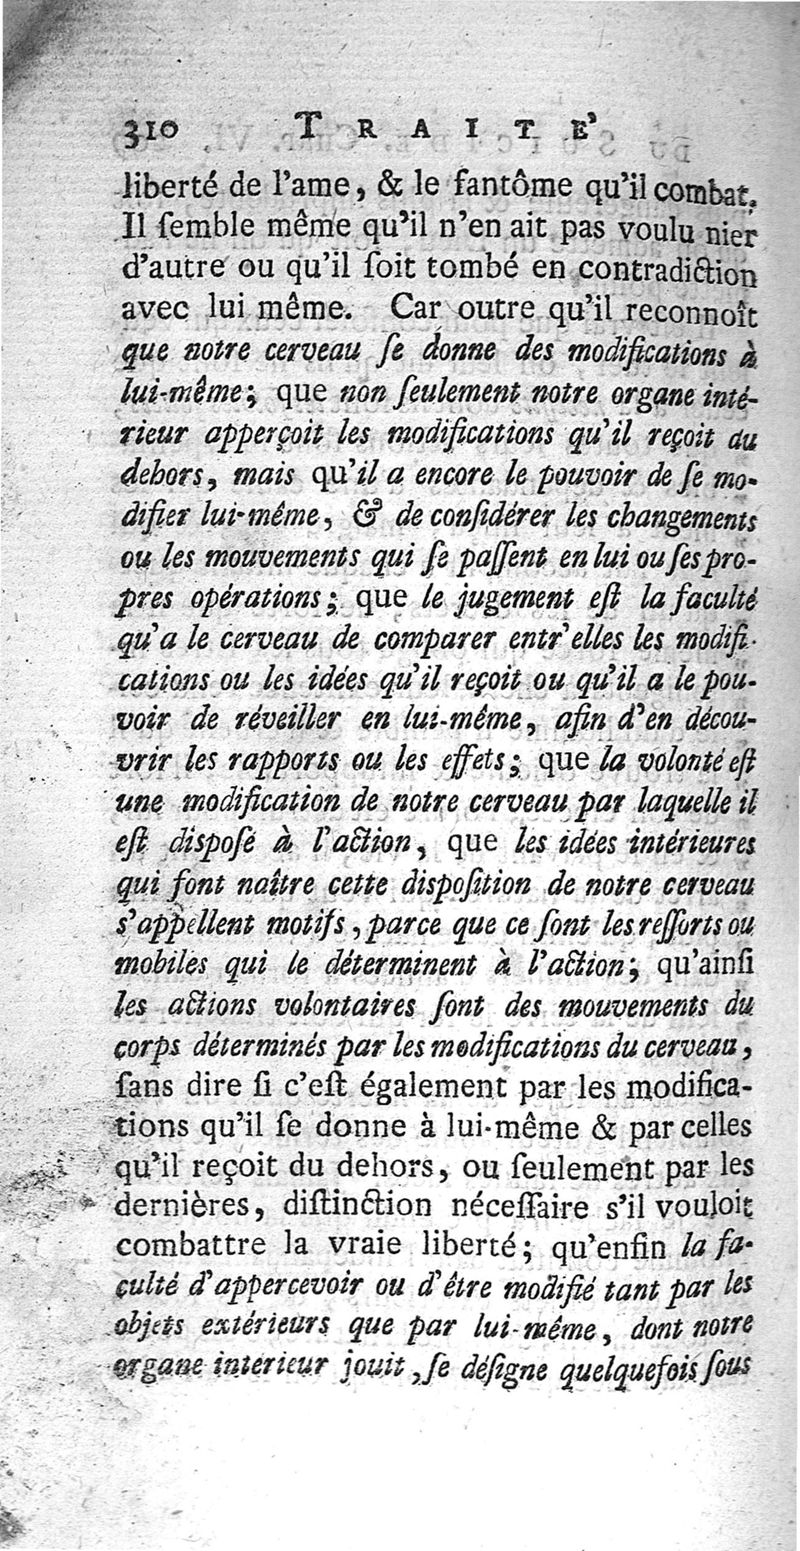 310 TRAITE'
liberté de l'ame, & le fantôme qu'il combat.
Il ſemble même qu'il n'en ait pas voulu nier
d'autre ou qu'il ſoit tombé en contradiction
avec lui même. Car outre qu'il reconnoît
que notre cerveau ſe donne des modifications à
lui-même; que non ſeulement notre organe inté-
rieur apperçoit les modifications qu'il reçoit du
dehors, mais qu'il a encore le pouvoir de ſe mo-
difier lui-même, & de conſidérer les changements
ou les mouvements qui ſe paſſent en lui ou ſes pro-
pres opérations; que le jugement eſt la faculté
qu'a le cerveau de comparer entr'elles les modifi-
cations ou les idées qu'il reçoit ou qu'il a le pou-
voir de réveiller en lui-même, afin d'en décou-
vrir les rapports ou les effets; que la volonté eſt
une modification de notre cerveau par laquelle il
eſt diſpoſé à l'action, que les idées intérieures
qui font naître cette diſpoſition de notre cerveau
s'appellent motifs, parce que ce ſont les reſſorts ou
mobiles qui le déterminent à l'action; qu'ainſi
les actions volontaires ſont des mouvements du
corps déterminés par les modifications du cerveau,
ſans dire ſi c'eſt également par les modifica-
tions qu'il ſe donne à lui-même & par celles
qu'il reçoit du dehors, ou ſeulement par les
dernières, diſtinction néceſſaire s'il vouloit
combattre la vraie liberté; qu'enfin la fa-
culté d'appercevoir ou d'être modifié tant par les
objets extérieurs que par lui-même, dont notre
organe interieur jouit, ſe déſigne quelquefois ſous